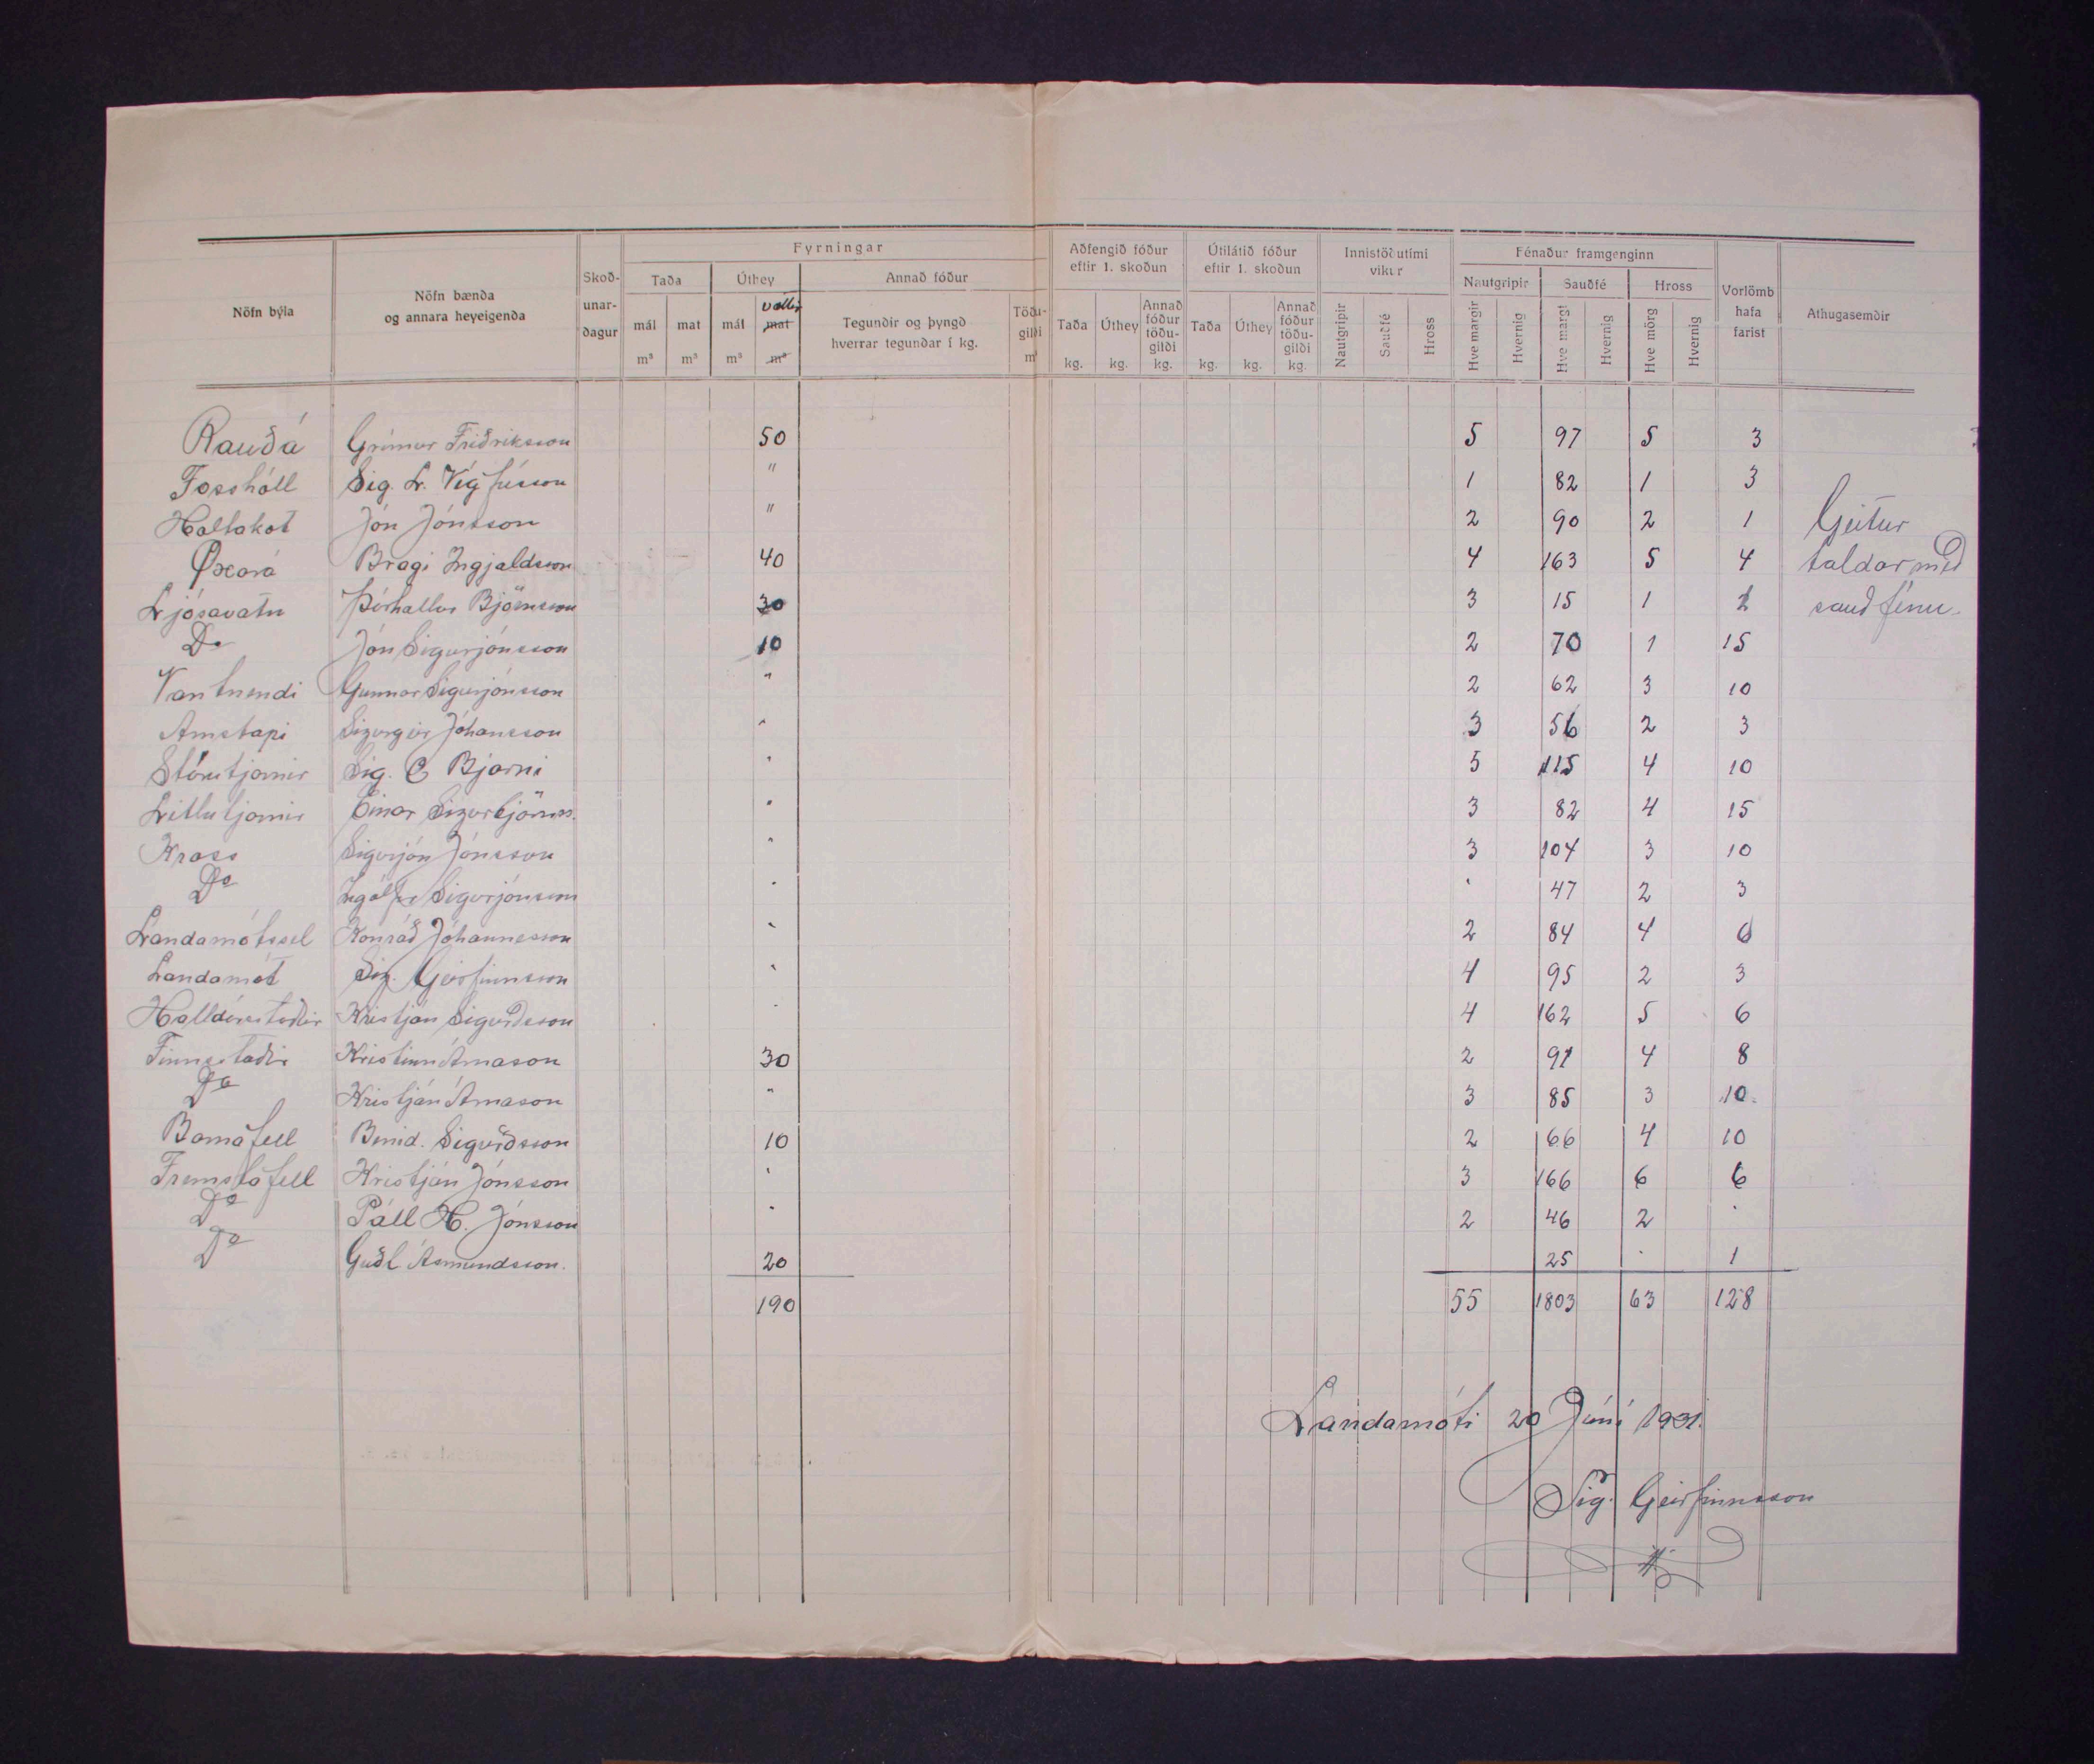 Nöfn býla | Nöfn bænða og annara heyeigenða | Skoð-unar-ðagur | Fyrningar | Aðfengið fóður eftir 1. skoðun | Útilátið fóður eftir 1. skoðun | Innistöðutími vikur | Fénaður framgenginn | Vorlömb hafa farist | Athugasemðir
Taða | Úthey | Annað fóður | Nautgripir | Sauðfé | Hross
mál m³ | mat m³ | mál m³ | vættir mat m³ | Tegunðir og þyngð hverrar tegunðar í kg. | Töðu-gilði m³ | Taða kg. | Úthey kg. | Annað fóður töðu-gilði kg. | Taða kg. | Úthey kg. | Annað fóður töðu-gilði kg. | Nautgripir | Sauðfé | Hross | Hve margir | Hvernig | Hve margt | Hvernig | Hve mörg | Hvernig
Rauðá | Grímur Friðriksson | 50 | 5 | 97 | 5 | 3
Fosshóll | Sig. L. Vigfússon | " | 1 | 82 | 1 | 3
Holtakot | Jón Jónsson | " | 2 | 90 | 2 | 1 | Geitur
Øxará | Bragi Ingjaldsson | 40 | 4 | 163 | 5 | 4 | taldar með
Ljósavatn | Þórhallur Björnsson | 30 | 3 | 15 | 1 | 2 | sauðfénu.
Do | Jón Sigurjónsson | 10 | 2 | 70 | 1 | 15
Vantnendi | Gunnar Sigurjónsson | " | 2 | 62 | 3 | 10
Arnstapi | Sigurgeir Jóhansson | " | 3 | 56 | 2 | 3
Stórutjarnir | Sig. | Bjarni | " | 5 | 115 | 4 | 10
Litlutjarnir | Einar Sigurbjörnss. | " | 3 | 82 | 4 | 15
Kross | Sigurjón Jónsson | " | 3 | 104 | 3 | 10
Do | Ingólfur Sigurjónsson | " | " | 47 | 2 | 3
Landamótssel | Konráð Jóhannesson | " | 2 | 84 | 4 | 6
Landamót | Sig. Geirfinnsson | " | 4 | 95 | 2 | 3
Halldórsstaðir | Kristján Sigurðsson | " | 4 | 162 | 5 | 6
Finnsstaðir | Kristinn Árnason | 30 | 2 | 91 | 4 | 8
Do | Kristján Árnason | " | 3 | 85 | 3 | 10
Barnafell | Benid. Sigurðsson | 10 | 2 | 66 | 4 | 10
Fremstafell | Kristján Jónsson | " | 3 | 166 | 6 | 6
Do | Páll H. Jónsson | " | 2 | 46 | 2 | "
Do | Guðl Ásmundsson. | 20 | 25 | " | 1
190 | 55 | 1803 | 63 | 128
Landamóti 20 Júní 1931.
Sig. Geirfinnsson